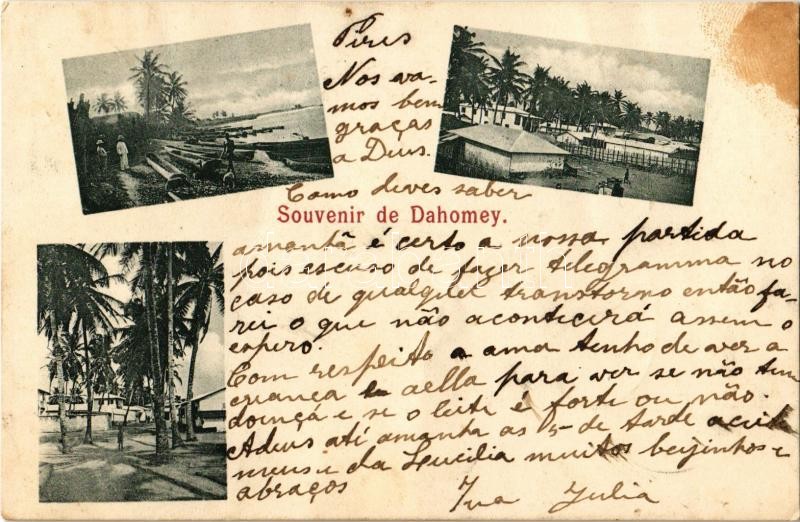 Pires
Nos va-
mos bem
graças
a Deus.
Como deves saber
Souvenir de Dahomey.
amanhã é certo a nossa partida
pois escuso de fazer telegramma no
caso de qualquer transtorno então fa-
rei o que não acontecerá assem o
espero.
Com respeito a ama tenho de ver a
criança e a ella para ver se não tem
doença e se o leite é forte ou não.
Adeus até amanha as 5 de tarde aceita
meus e da Lucilia muitos beijinhos e
abraços
Tua Julia